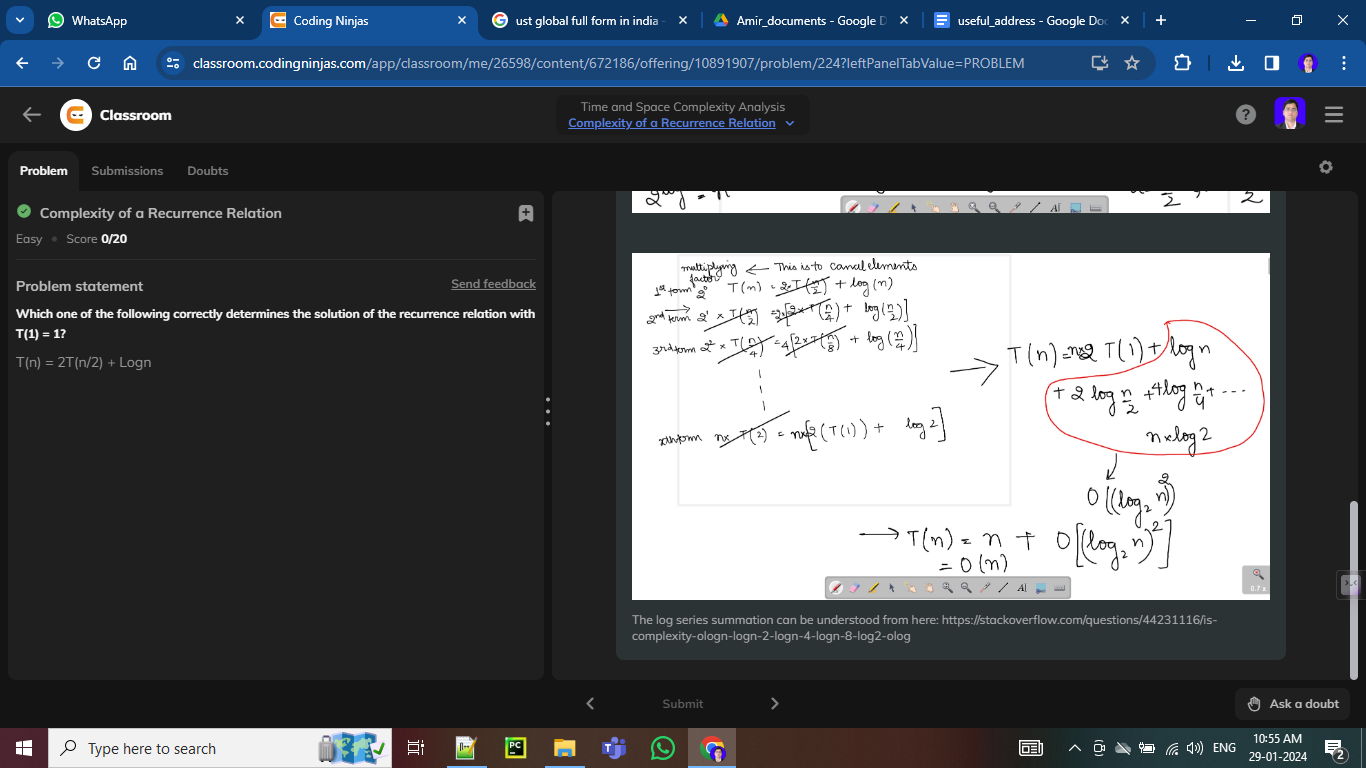 WhatsApp
Coding Ninjas
ust global full form in india -
Amir_documents - Google D
useful_address - Google Doc
classroom.codingninjas.com/app/classroom/me/26598/content/672186/offering/10891907/problem/224?leftPanelTabValue=PROBLEM
Classroom
Time and Space Complexity Analysis
Complexity of a Recurrence Relation
Problem
Submissions
Doubts
Complexity of a Recurrence Relation
Easy • Score 0/20
Problem statement
Send feedback
Which one of the following correctly determines the solution of the recurrence relation with
T(1) = 1?
T(n) = 2T(n/2) + Logn
multiplying factor ← This is to cancel elements
1st term 2⁰ T(n) = 2×T(n/2) + log(n)
2nd term 2¹ × T(n/2) = 2[2×T(n/4) + log(n/2)]
3rd term 2² × T(n/4) = 4[2×T(n/8) + log(n/4)]
n× T(2) = n×[2(T(1)) + log 2]
→ T(n) = n×2 T(1) + log n
+ 2 log n/2 + 4 log n/4 + ----
n×log 2
O((log₂ n)²)
→ T(n) = n + O[(log₂ n)²]
= O(n)
AI
0.7 x
The log series summation can be understood from here: https://stackoverflow.com/questions/44231116/is-
complexity-ologn-logn-2-logn-4-logn-8-log2-olog
Submit
Ask a doubt
Type here to search
PC
ENG
10:55 AM
29-01-2024
2